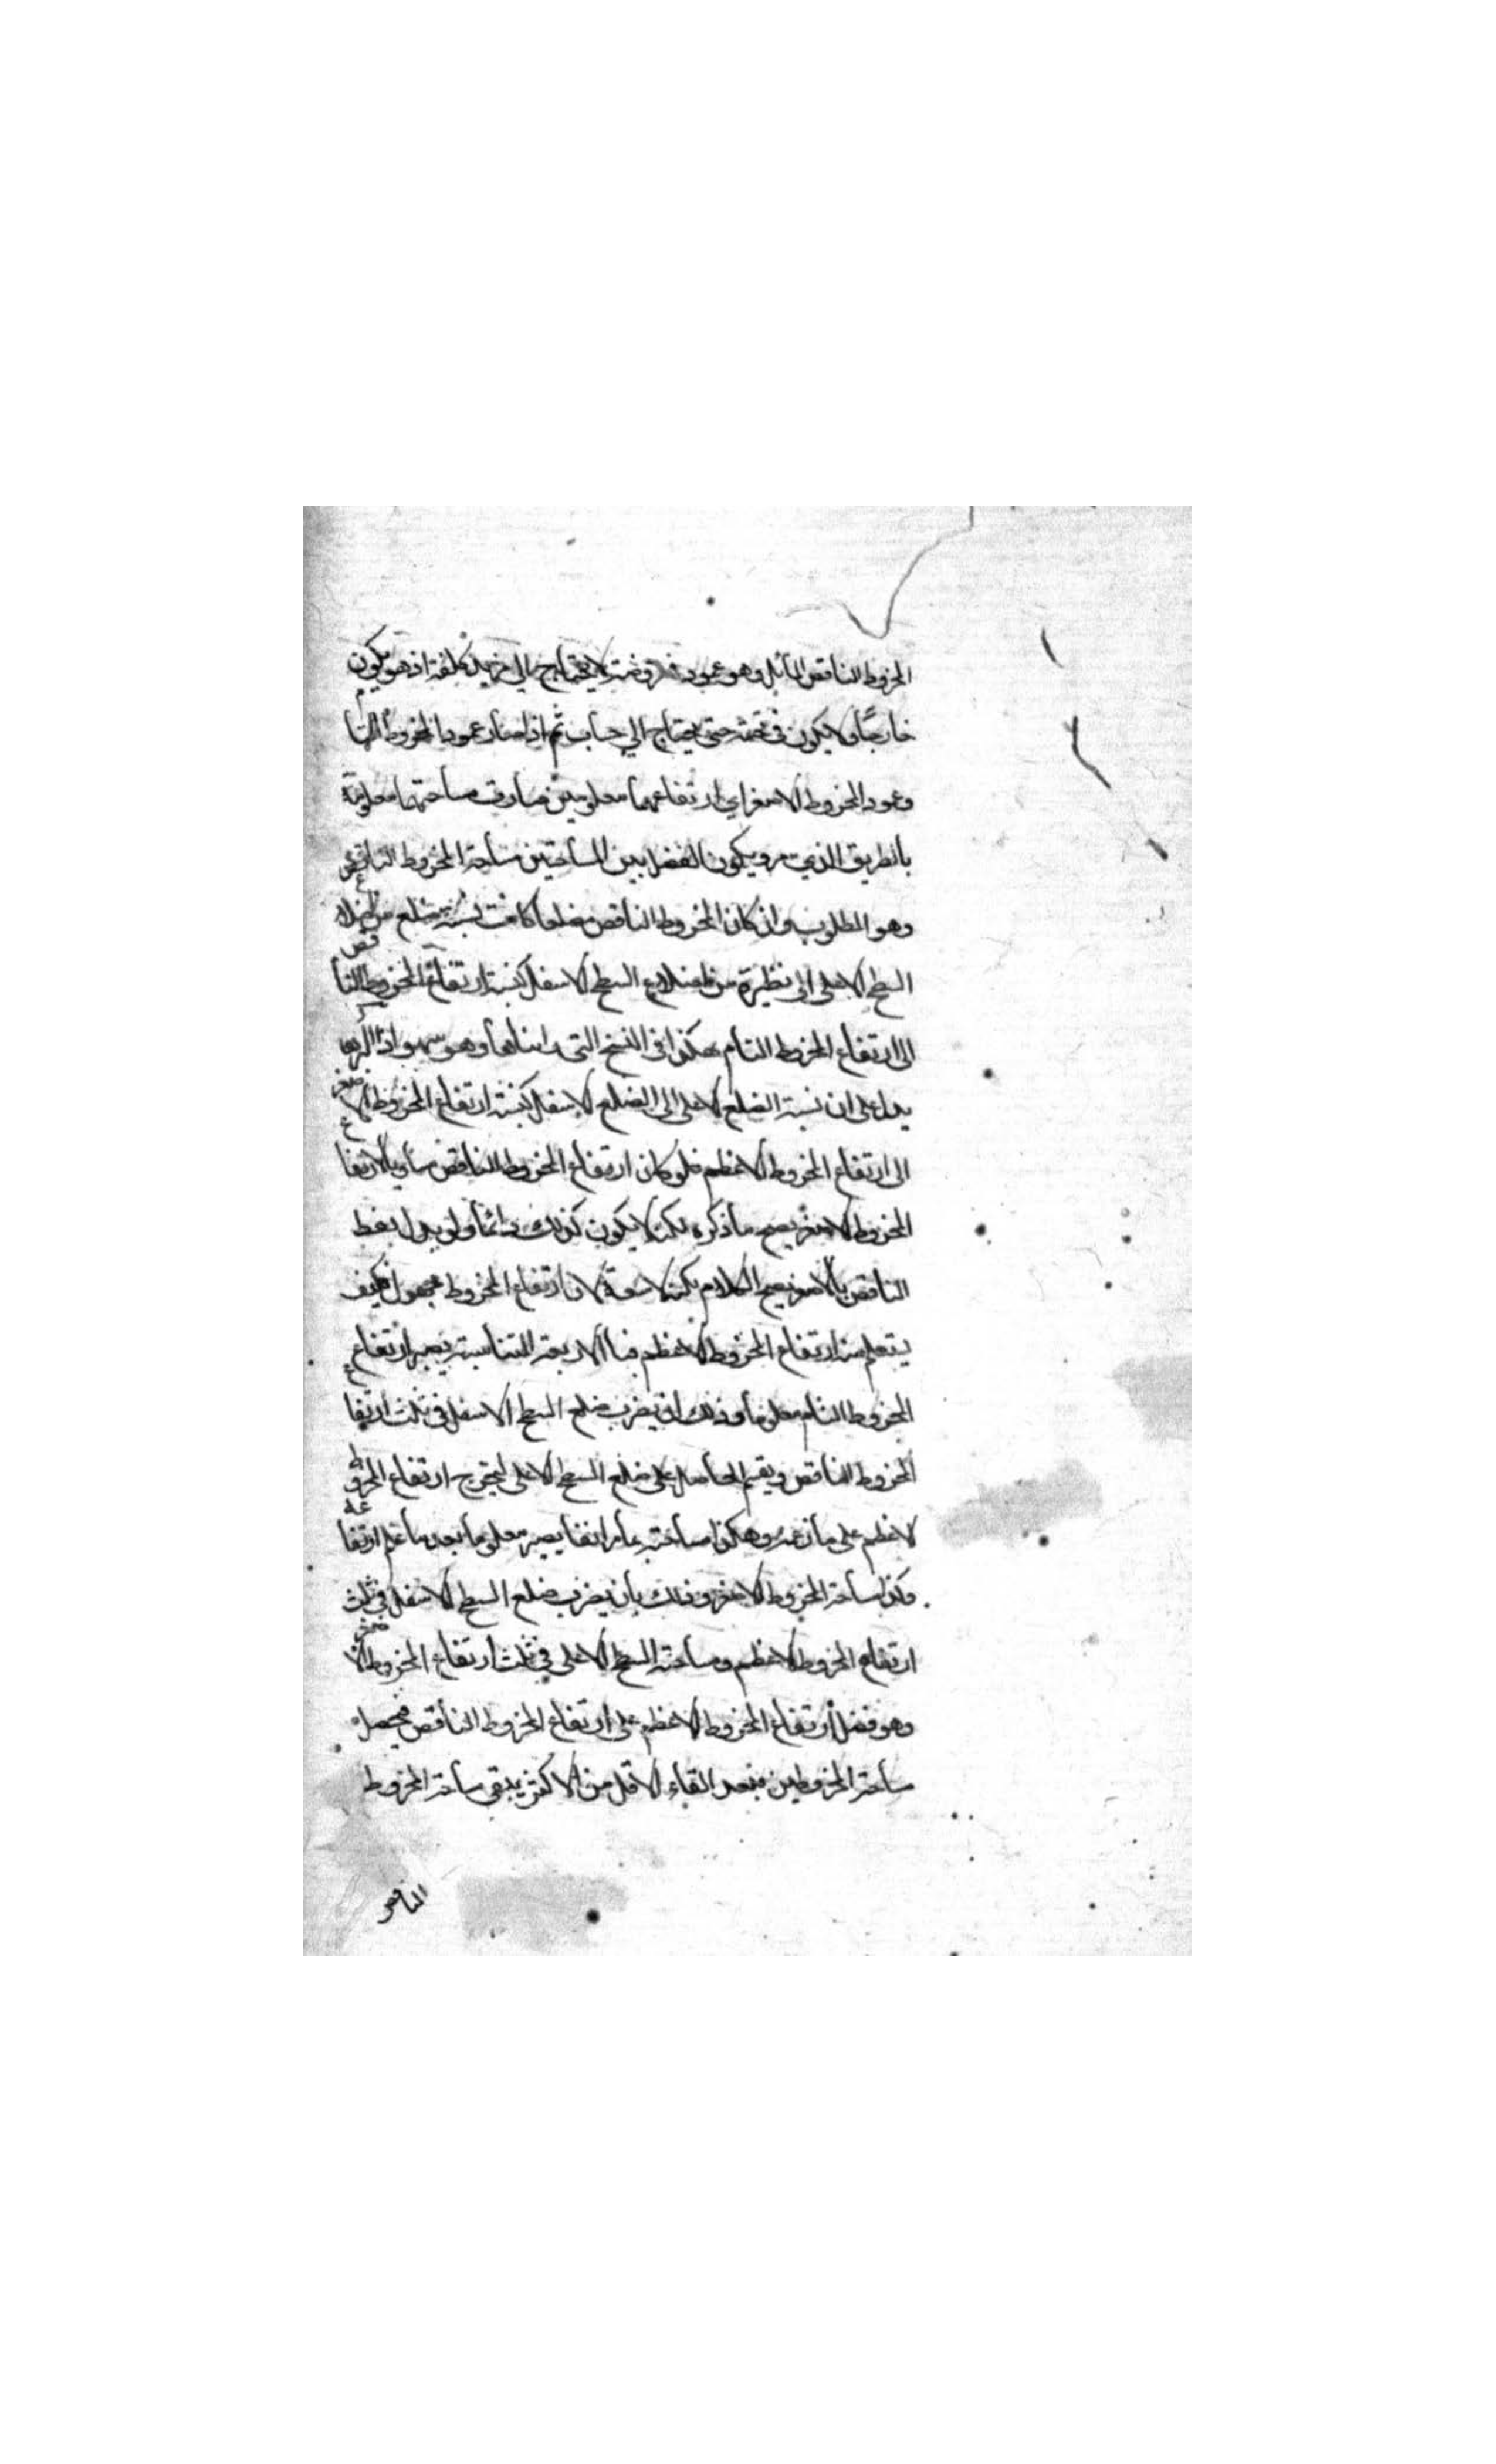 المخروط الناقص المائل وهو عمود معرفته لا يحتاج الي مزيد كلفة اذ هو يكون
خارجًا ولا يكون في تحته حتى يحتاج الي حساب ثم اذا صار عمودا المخروط التام
وعمود المخروط الاصغر اي ارتفاعهما معلومين صارت مساحتهما معلومة
بالطريق الذي مر ويكون الفضل بين المساحتين مساحة المخروط الناقص
وهو المطلوب وان كان المخروط الناقص مضلعا كانت نسبة ضلع من اضلاع
السطح الاعلى الى نظيره من اضلاع السطح الاسفل كنسبة ارتفاع المخروط الناقص
الى ارتفاع المخروط التام هكذا في النسخ التي رايناها وهو سهو اذ
يدل على ان نسبة الضلع الاعلى الى الضلع الاسفل كنسبة ارتفاع المخروط الاصغر
الى ارتفاع المخروط الاعظم فلو كان ارتفاع المخروط الناقص مساويا لارتفاع
المخروط الاصغر يصح ما ذكره لكنه لا يكون كذلك دائما ولو بدل لفظ
الناقص بالاصغر يصح الكلام لكنه لا ارتفاع المخروط مجهول فكيف
يتعلم منه ارتفاع المخروط الاعظم فبالاربعة المتناسبة يصير ارتفاع
المخروط التام معلوما وذلك ان يضرب ضلع السطح الاسفل في ثلث ارتفاع
المخروط الناقص ويقسم الحاصل على ضلع السطح الاعلى ليخرج ارتفاع المخروط
الاعظم على ما زعمه وهكذا مساحته بما مر انفا يصير معلوما بعد ما علم ارتفاعه
وكذا مساحة المخروط الاصغر وذلك بان يضرب ضلع السطح الاسفل في ثلث
ارتفاع المخروط الاعظم ومساحة السطح الاعلى في ثلث ارتفاع المخروط الاصغر
وهو فضل ارتفاع المخروط الاعظم على ارتفاع المخروط الناقص فيحصل
مساحة المخروطين فبعد القاء الاقل من الاكثر يبقى مساحة المخروط
الناقص